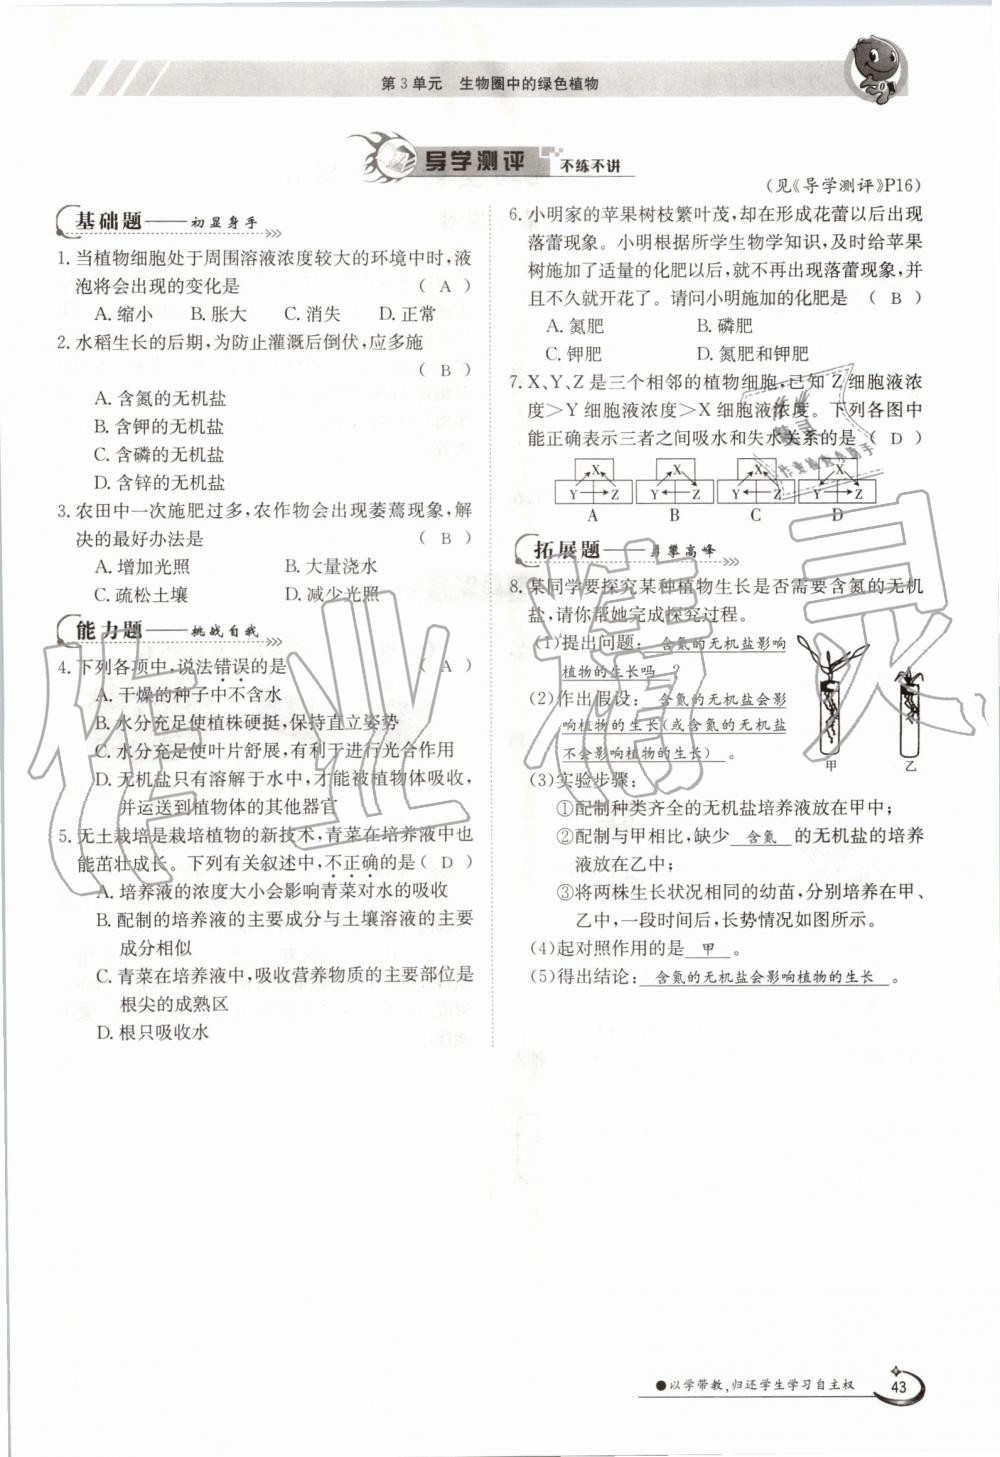 第3单元 生物圈中的绿色植物
导学测评 不练不讲
基础题——初显身手
1. 当植物细胞处于周围溶液浓度较大的环境中时,液
泡将会出现的变化是 ( A )
A. 缩小 B. 胀大 C. 消失 D. 正常
2. 水稻生长的后期,为防止灌溉后倒伏,应多施
( B )
A. 含氮的无机盐
B. 含钾的无机盐
C. 含磷的无机盐
D. 含锌的无机盐
3. 农田中一次施肥过多,农作物会出现萎蔫现象,解
决的最好办法是 ( B )
A. 增加光照 B. 大量浇水
C. 疏松土壤 D. 减少光照
能力题——挑战自我
4. 下列各项中,说法错误的是 ( A )
A. 干燥的种子中不含水
B. 水分充足使植株硬挺,保持直立姿势
C. 水分充足使叶片舒展,有利于进行光合作用
D. 无机盐只有溶解于水中,才能被植物体吸收,
并运送到植物体的其他器官
5. 无土栽培是栽培植物的新技术,青菜在培养液中也
能茁壮成长。下列有关叙述中,不正确的是( D )
A. 培养液的浓度大小会影响青菜对水的吸收
B. 配制的培养液的主要成分与土壤溶液的主要
成分相似
C. 青菜在培养液中,吸收营养物质的主要部位是
根尖的成熟区
D. 根只吸收水
(见《导学测评》P16)
6. 小明家的苹果树枝繁叶茂,却在形成花蕾以后出现
落蕾现象。小明根据所学生物学知识,及时给苹果
树施加了适量的化肥以后,就不再出现落蕾现象,并
且不久就开花了。请问小明施加的化肥是 ( B )
A. 氮肥 B. 磷肥
C. 钾肥 D. 氮肥和钾肥
7. X、Y、Z 是三个相邻的植物细胞,已知 Z 细胞液浓
度>Y 细胞液浓度>X 细胞液浓度。下列各图中
能正确表示三者之间吸水和失水关系的是 ( D )
X X X X
Y Z Y Z Y Z Y Z
A B C D
拓展题——勇攀高峰
8. 某同学要探究某种植物生长是否需要含氮的无机
盐,请你帮她完成探究过程。
(1)提出问题: 含氮的无机盐会影响
植物的生长吗 ?
(2)作出假设: 含氮的无机盐会影
响植物的生长(或含氮的无机盐
不会影响植物的生长) 。
甲 乙
(3)实验步骤:
①配制种类齐全的无机盐培养液放在甲中;
②配制与甲相比,缺少 含氮 的无机盐的培养
液放在乙中;
③将两株生长状况相同的幼苗,分别培养在甲、
乙中,一段时间后,长势情况如图所示。
(4)起对照作用的是 甲 。
(5)得出结论: 含氮的无机盐会影响植物的生长 。
作业精灵
作业
精灵
作业检查小助手
●以学带教,归还学生学习自主权
43